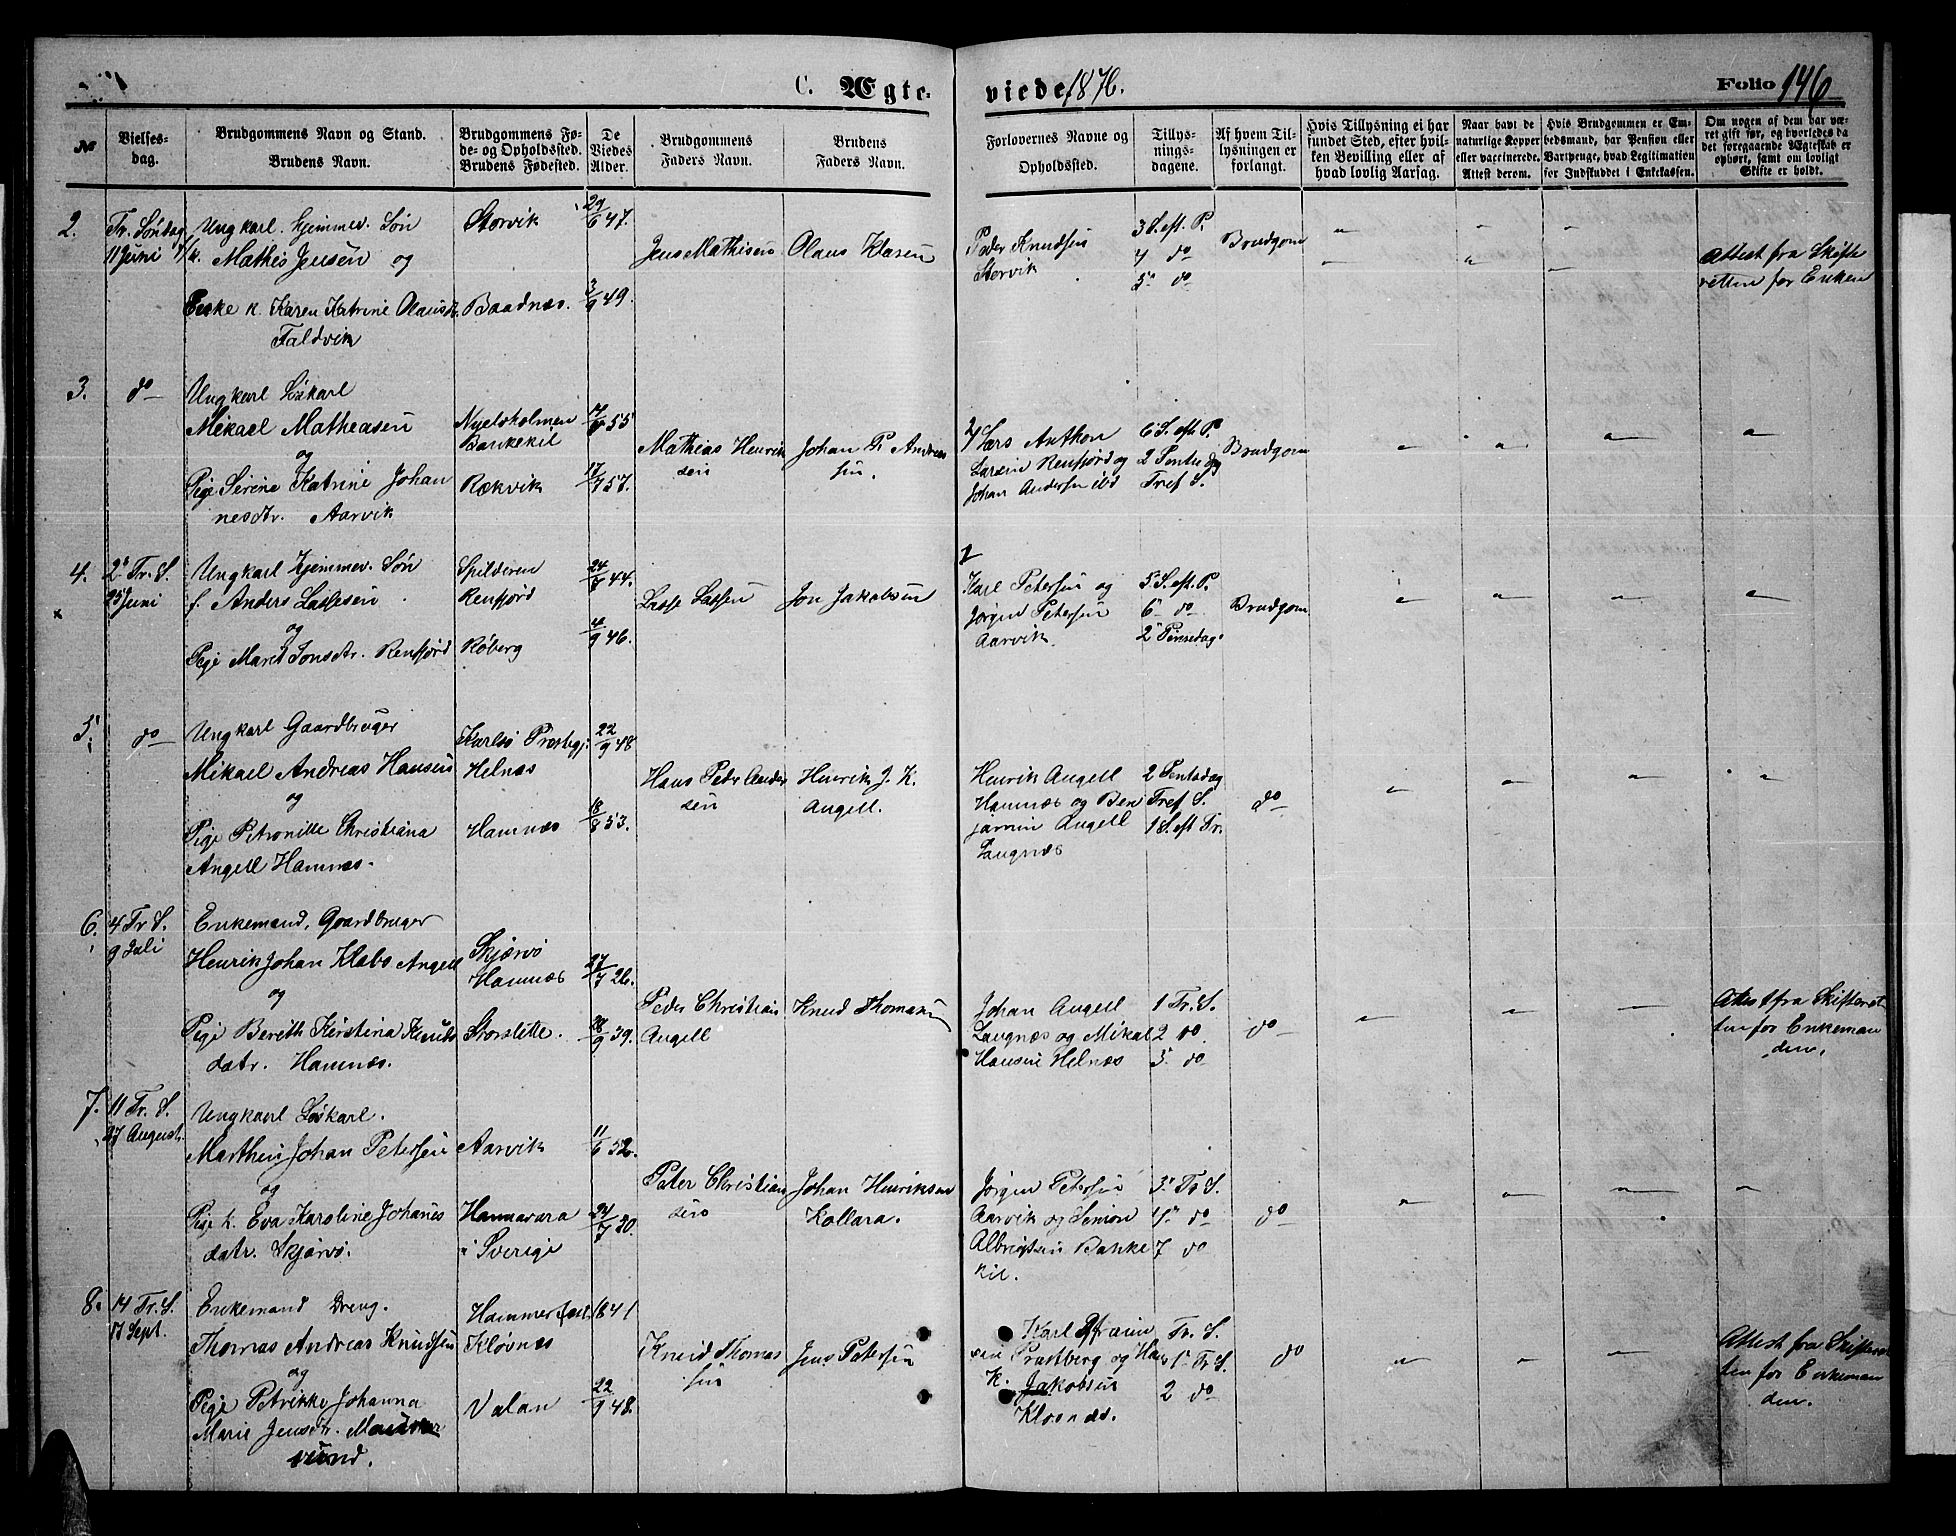 C. Ægte-
viede 1876.
Folio 146
№
Vielses-
dag.
Brudgommens Navn og Stand.
Brudens Navn.
Brudgommens Fø-
de- og Opholdssted.
Brudens Fødested.
De
Viedes
Alder.
Brudgommens
Faders Navn.
Brudens
Faders Navn.
Forlovernes Navne og
Opholdssted.
Tillys-
nings-
dagene.
Af hvem Til-
lysningen er
forlangt.
Hvis Tillysning ei har
fundet Sted, efter hvil-
ken Bevilling eller af
hvad lovlig Aarsag.
Naar havt de
naturlige Kopper
eller vaccinerede.
Attest derom.
Hvis Brudgommen er Em-
bedsmand, har Pension eller
Vartpenge, hvad Legitimation
for Indskuddet i Enkekassen.
Om nogen af dem har væ-
ret gift før, og hvorledes da
det foregaaende Ægteskab er
ophørt, samt om lovligt
Skifte er holdt.
2.
Tr. Søndag
11 Juni
Ungkarl. Hjemmev. Søn
k. Mathis Jensen og
Enke k. Karen Katrine Olausdr.
Faldvik
Storvik
Baadnæs.
29/6 47.
3/9 49.
Jens Mathisen
Olaus Klasen
Peder Knudsen
Storvik
3 S. eft. P.
4 do
5 do
Brudgom
Attest fra Skifte
retten for Enken
3.
do
Ungkarl Løskarl
Mikael Matheasen
og
Pige Serine Katrine Johan
nesdtr. Aarvik
Nyelvholmen
Bankekil
Rækvik
55
17/7 57.
Mathias Henrik
sen
Johan P. Andrea
sen.
Lars Anthon
Larsen Renfjord og
Johan Andersen ibd
6 S. eft P.
2 Pentedag
Tref S.
Brudgom
4.
2 Tr. S.
25 Juni
Ungkarl Hjemmev. Søn
f. Anders Lassesen
og
Pige Maret Jonsdtr. Renfjord
Spilderen
Renfjord
Røberg
44.
4/9 46.
Lasse Lassen
Jon Jakobsen
Karl Petersen og
Jørgen Petersen
Aarvik
5 S. eft. P.
6 do
2 Pinsedag.
Brudgom
5.
do
Ungkarl Gaardbruger
Mikael Andreas Hansen
og
Pige Petronille Christiana
Angell Hamnæs.
Karlsø Præstegj.
Helnæs
Hamnæs
22/9 48
18/8 53.
Hans Peder Ander
sen
Henrik J. K.
Angell.
Henrik Angell
Hamnæs og Ben
jamin Angell
Laugnæs
2 Pentedag
Tref S.
1 S. eft Tr.
do
6.
4 Tr S.
9 Juli
Enkemand, Gaardbruger
Henrik Johan Klæbo Angell
og
Pige Bereth Kirstina Knuds
datr. Hamnæs.
Skjærvø
Hamnæs
Storslette.
27/7 26.
28/9 39.
Peder Christian
Angell
Knud Thomasen
Johan Angell
Laugnæs og Mikal
Hansen Helnæs
1 Tr. S.
2 do
3 do
do
Attest fra Skifteret
ten for Enkeman
den.
7.
11 Tr. S.
27 August.
Ungkarl Løskarl.
Marthin Johan Petersen
og
Pige k. Eva Karoline Johanes
datr. Skjærvø.
Aarvik
Hannavara
i Sverige
11/6 52.
24/7 30.
Peter Christian
sen
Johan Henriksen
Kollara.
Jørgen Petersen
Aarvik og Simon
Albrigtsen Banke
kil.
3 Tr S.
4 do
7 do
do
8.
14 Tr. S.
17 Sept.
Enkemand Dreng.
Thomas Andreas Knudsen
og
Pige Petrikke Johanna
Marie Jensdtr. Maursund.
Hammerfest
Kløvnæs
Valan
1841
22/9 48.
Knud Thomas
sen
Jens Petersen
Karl Efraim
sen Præstberg og Hans
K. Jakobsen
Kloonæs.
Tr. S.
1 Tr S.
2 do
do
Attest fra Skifteret
ten for Enkeman
den.